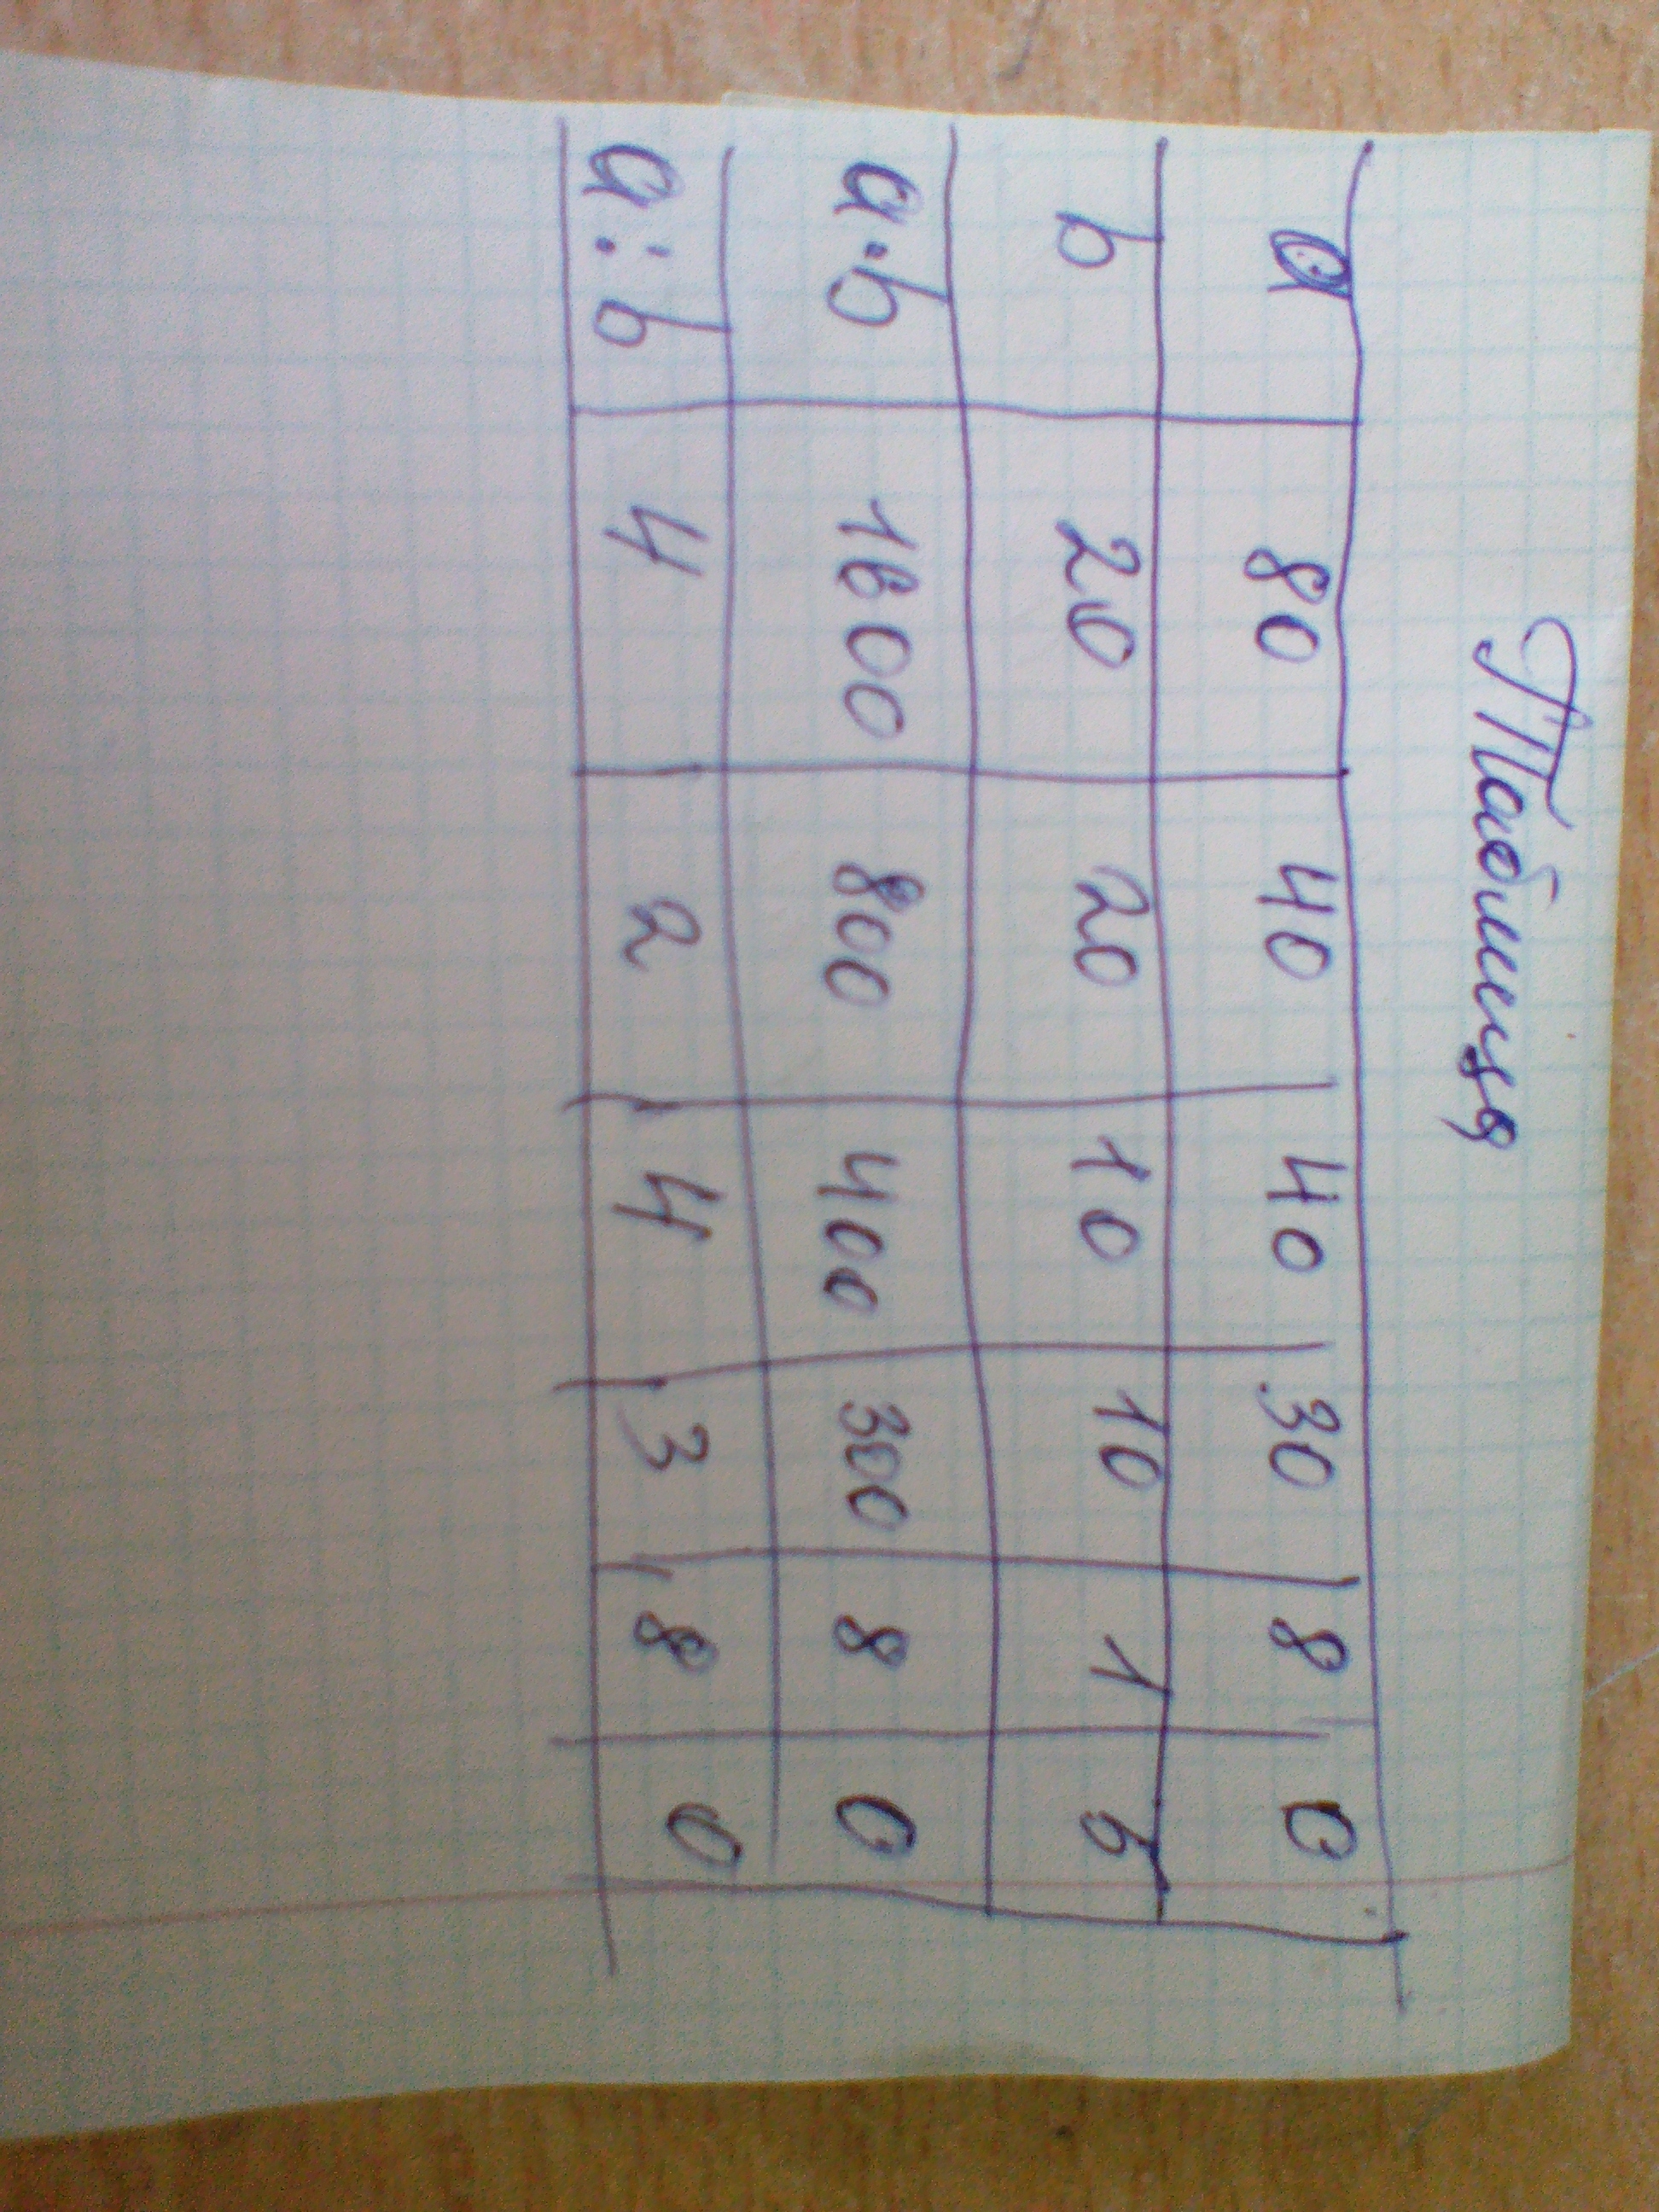 Таблиця
a 80 40 40 30 8 0
b 20 20 10 10 1 b
a·b 1600 800 400 300 8 0
a:b 4 2 4 3 8 0